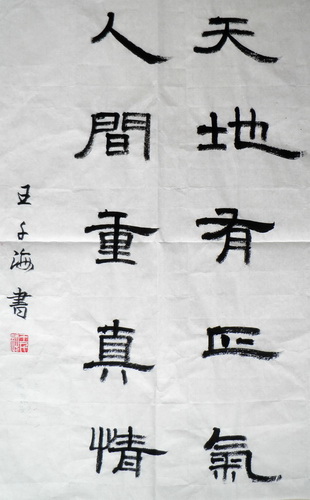 天地有正氣
人間重真情
王子海書